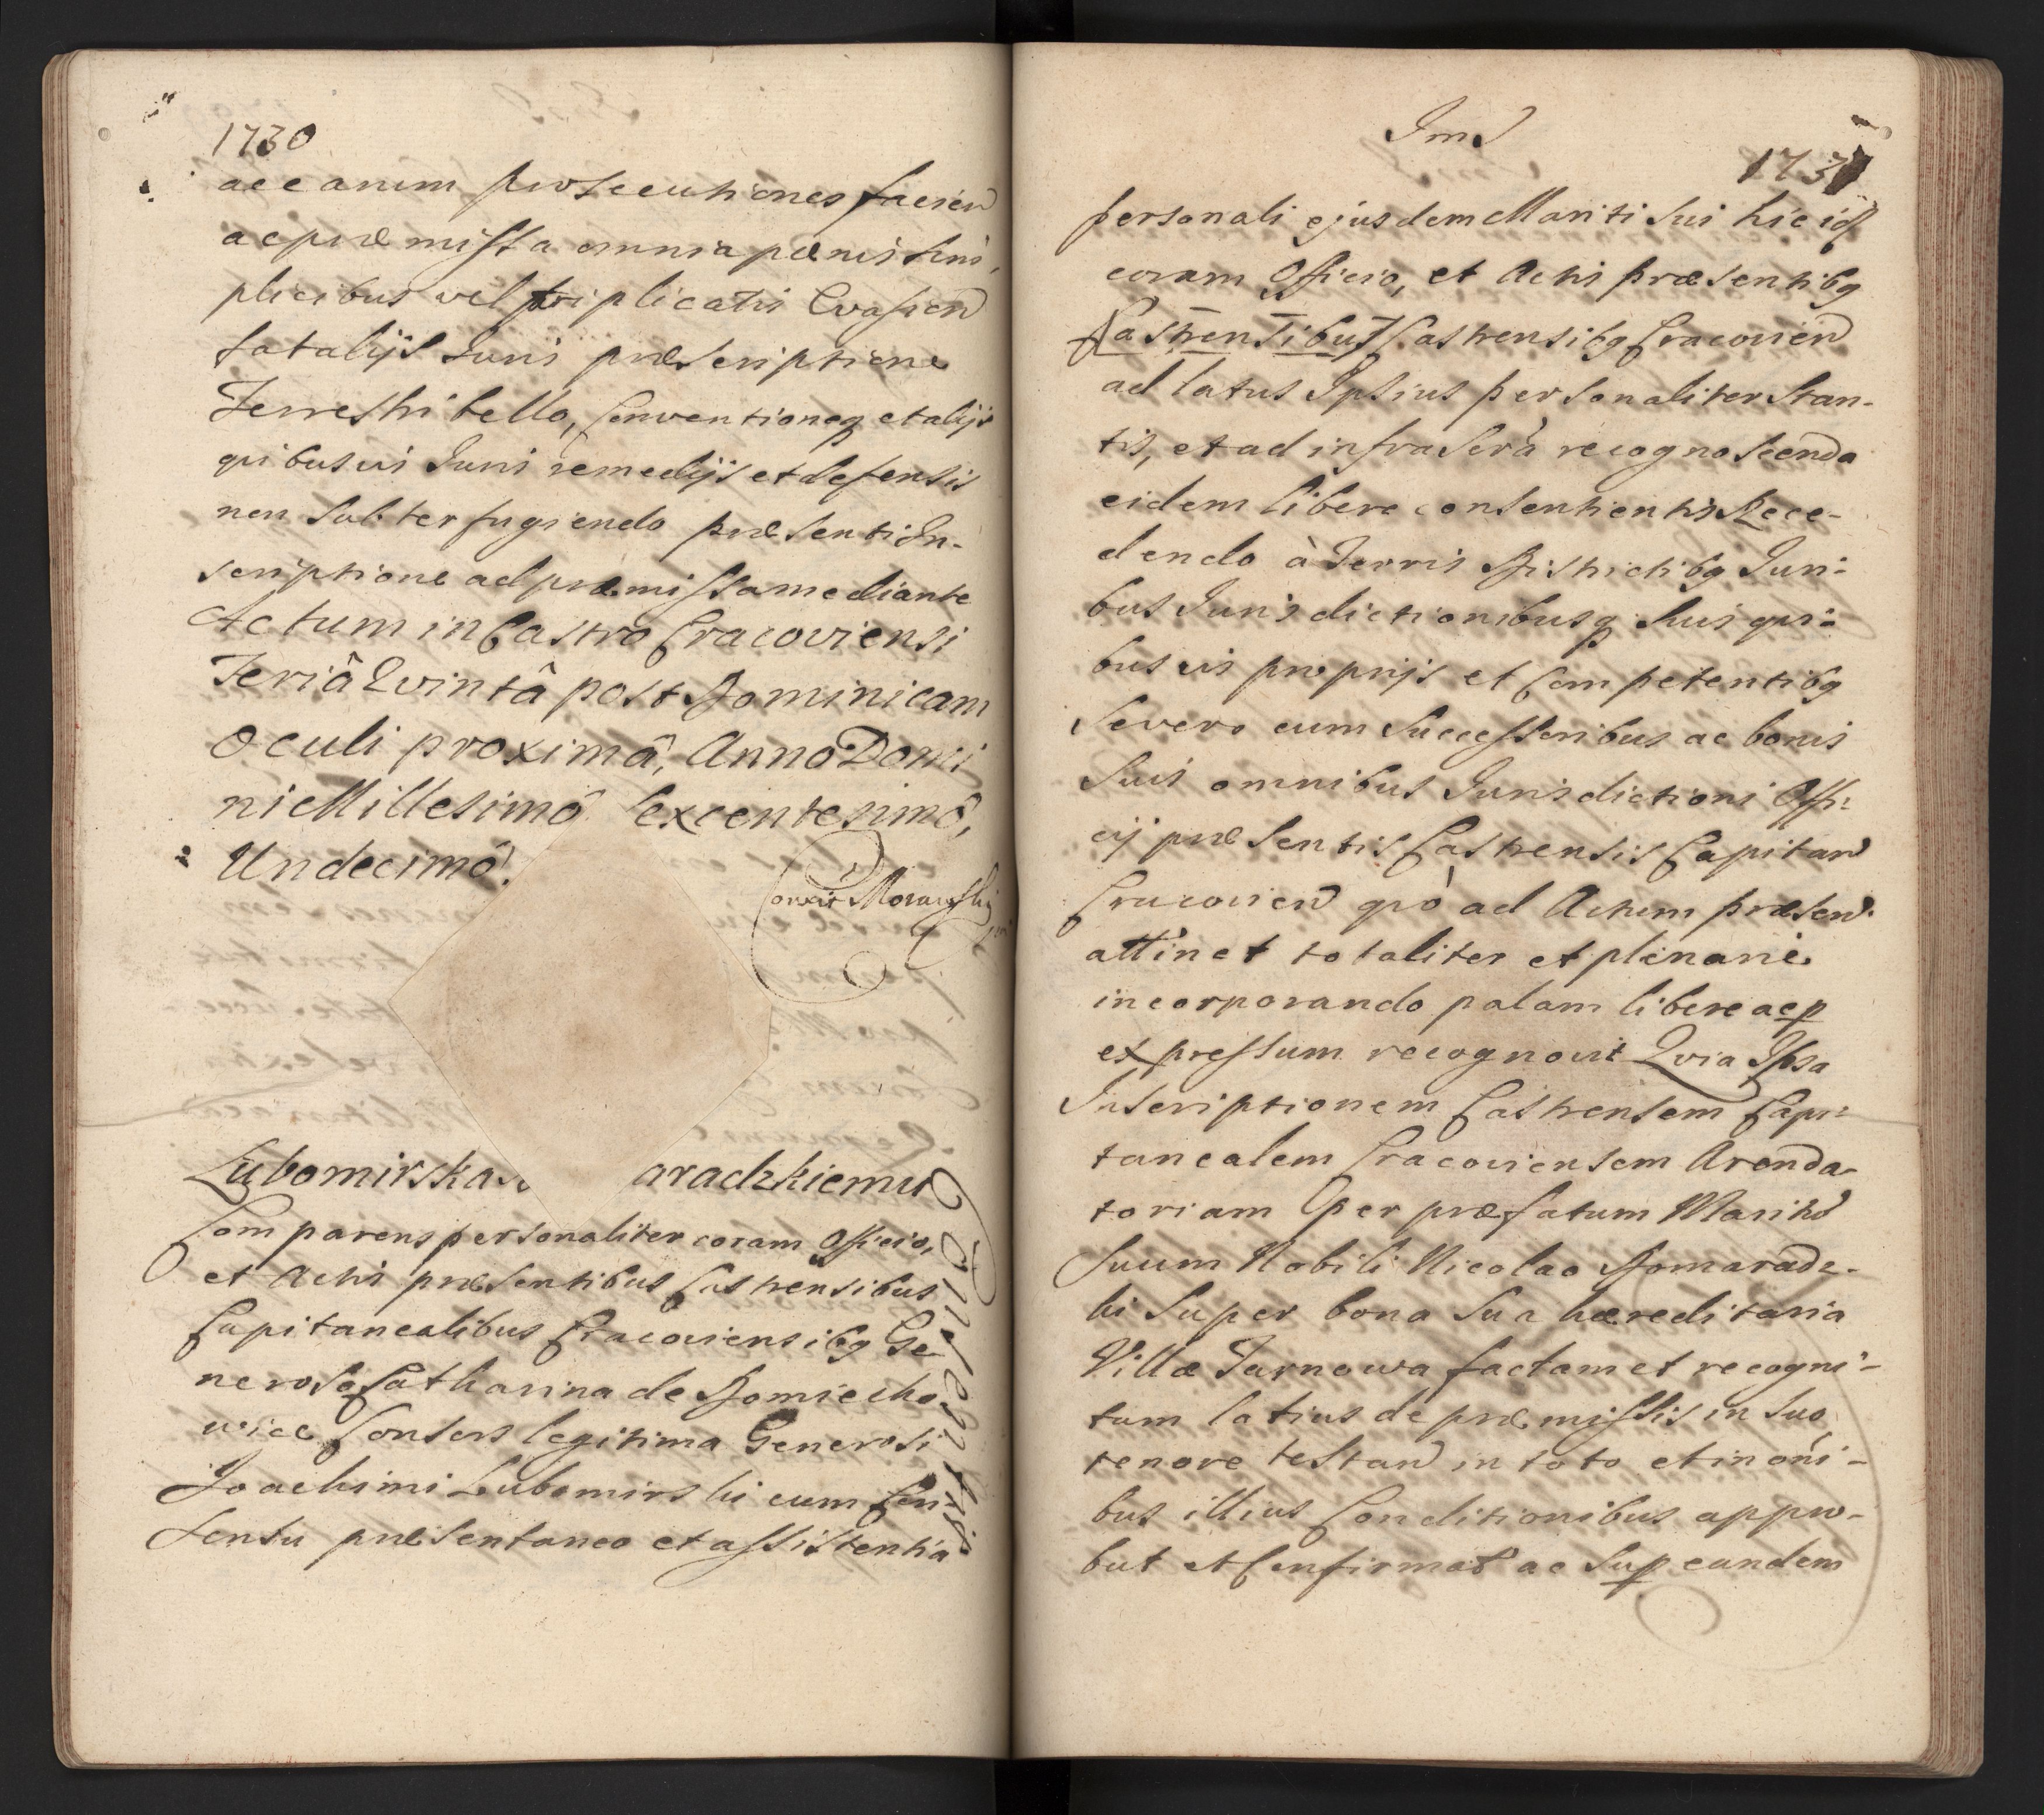 1730
ac earum prosecutiones facien
ac præmissa omnia pænis sim,
plicibus vel triplicatis Evasion
fatalijs Iuris præscriptione
Terrestri bello, Conventioneq et alijs
quibusvis Iuris remedijs et defensis
non subterfugiendo præsenti In-
scriptione ad præmissa mediante
Actum in Castro Cracoviensi
Feriâ Qvintâ post Dominicam
Oculi proximâ, Anno Domi
ni Millesimô Sexcentesimô,
Undecimô.
Correxit Morawski
Lubomirska aradzkiemu
Comparens personaliter coram Officio,
et Actis præsentibus Castrensibus
Capitanealibus Cracoviensibq Ge
nerosa Catharina de Domiecho
wice Consors legitima Generosi
Joachimi Lubomirski cum Con-
sensu præsentaneo et assistentia
Consensus
Ind
1731
personali ejusdem Mariti sui hic
coram Officio, et Actis præsentibq
Castrensibus Castrensibq Cracovien
ad latus Ipsius personaliter stan-
tis, et ad infra scrà recognoscenda
eidem libere consentientis Rece-
dendo à Terris Districtibq Juri-
bus Jurisdictionibusq suis qui-
busvis proprijs et Competentibq
se vero cum Successoribus ac bonis
suis omnibus Jurisdictioni Offi-
cij præsentis Castrensis Capitan
Cracovien quò ad Actum præsen
attinet totaliter et plenarie
incorporando palam libere ac p
expressum recognovit Qvia Ipsa
Inscriptionem Castrensem Capi-
tanealem Cracoviensem Arenda-
toriam per præfatum Maritu
suum Nobili Nicolao Domaradz-
ki super bona sua hæreditaria
Villæ Tarnowa factam et recogni-
tam latius de præmissis in suo
tenore testan in toto et in oni-
bus illius Conditionibus appro-
bat et Confirmat ac sup eandem